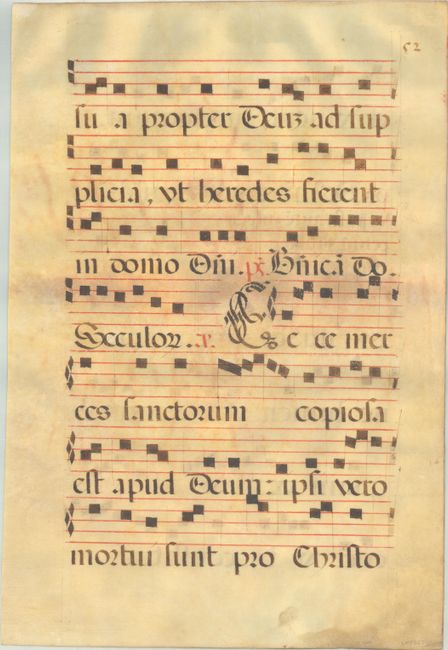 52
su a propter Deuʒ ad sup
plicia, vt heredes fierent
in domo Dñi. ps. Bñicā Do.
Seculoꝝ. x. Ec ce mer
ces sanctorum copiosa
est apud Deum: ipsi vero
mortui sunt pro Christo